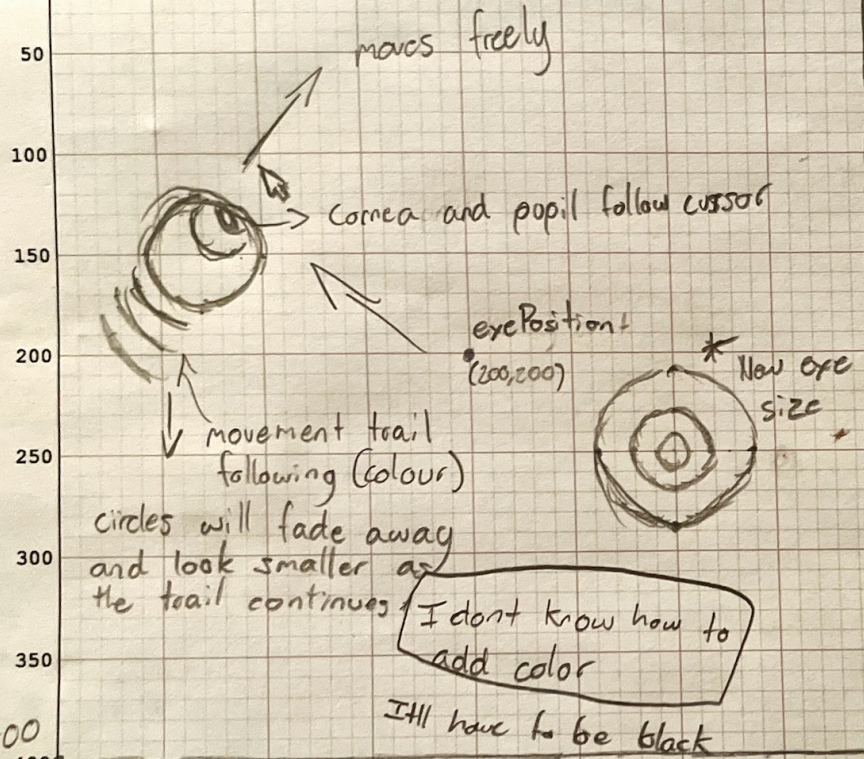 50
moves freely
100
Cornea and pupil follow cursor
150
eyePosition
200
(200,200)
New eye
size
movement trail
250
following (colour)
circles will fade away
300
and look smaller as
the trail continues
I dont know how to
350
add color
Itll have to be black
00